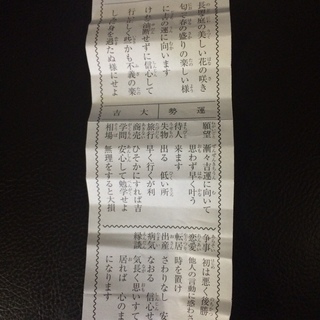 長閑庭の美しい花の咲き
匂う春の盛りの楽しい様
に吉の運に向います
けれ油断せずに信心して
行をして些かも不義の楽
しみ
運勢 大吉
願望 漸々吉運に向いて
思わず早く叶う
待人 来ます
失物 出る 低い所
旅行 早く行くが利
商売 ひそかにすれば吉
学問 安心して勉学せよ
相場 無理をすると大損
争事 初は悪く後勝
恋愛 他人の言動に惑わさ
転居 時を置け
出産 さわりなし 安
病気 なおる 信心せ
縁談 気長く思いすて
居れば 心のま
になります